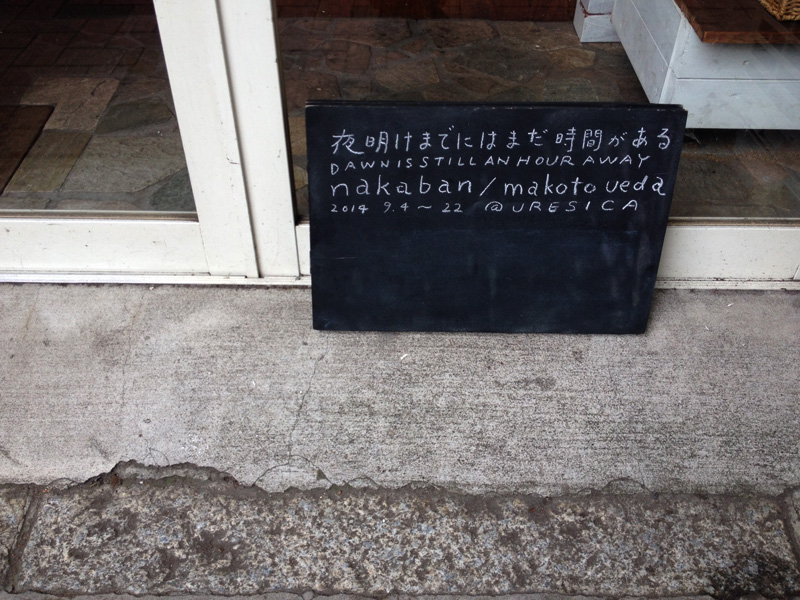 夜明けまでにはまだ時間がある
DAWN IS STILL AN HOUR AWAY
nakaban/makoto ueda
2014 9.4～22 @URESICA